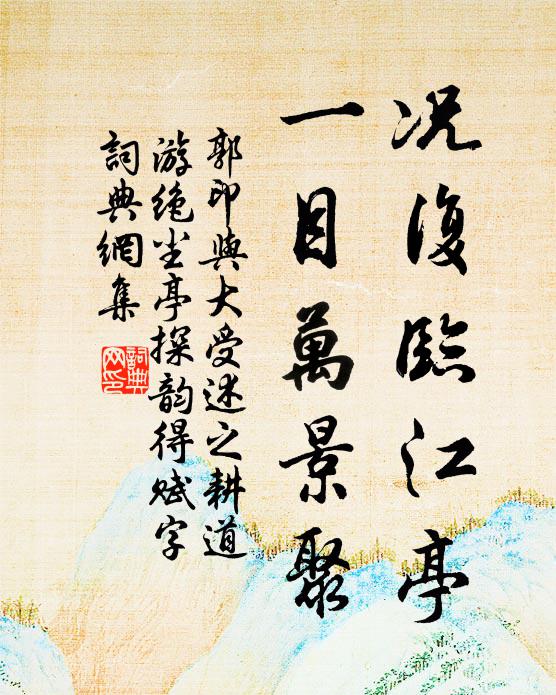 况復臨江亭
一目萬景聚
郭印與大受述之耕道
游绝尘亭探韵得赋字
詞典網集
詞典網印